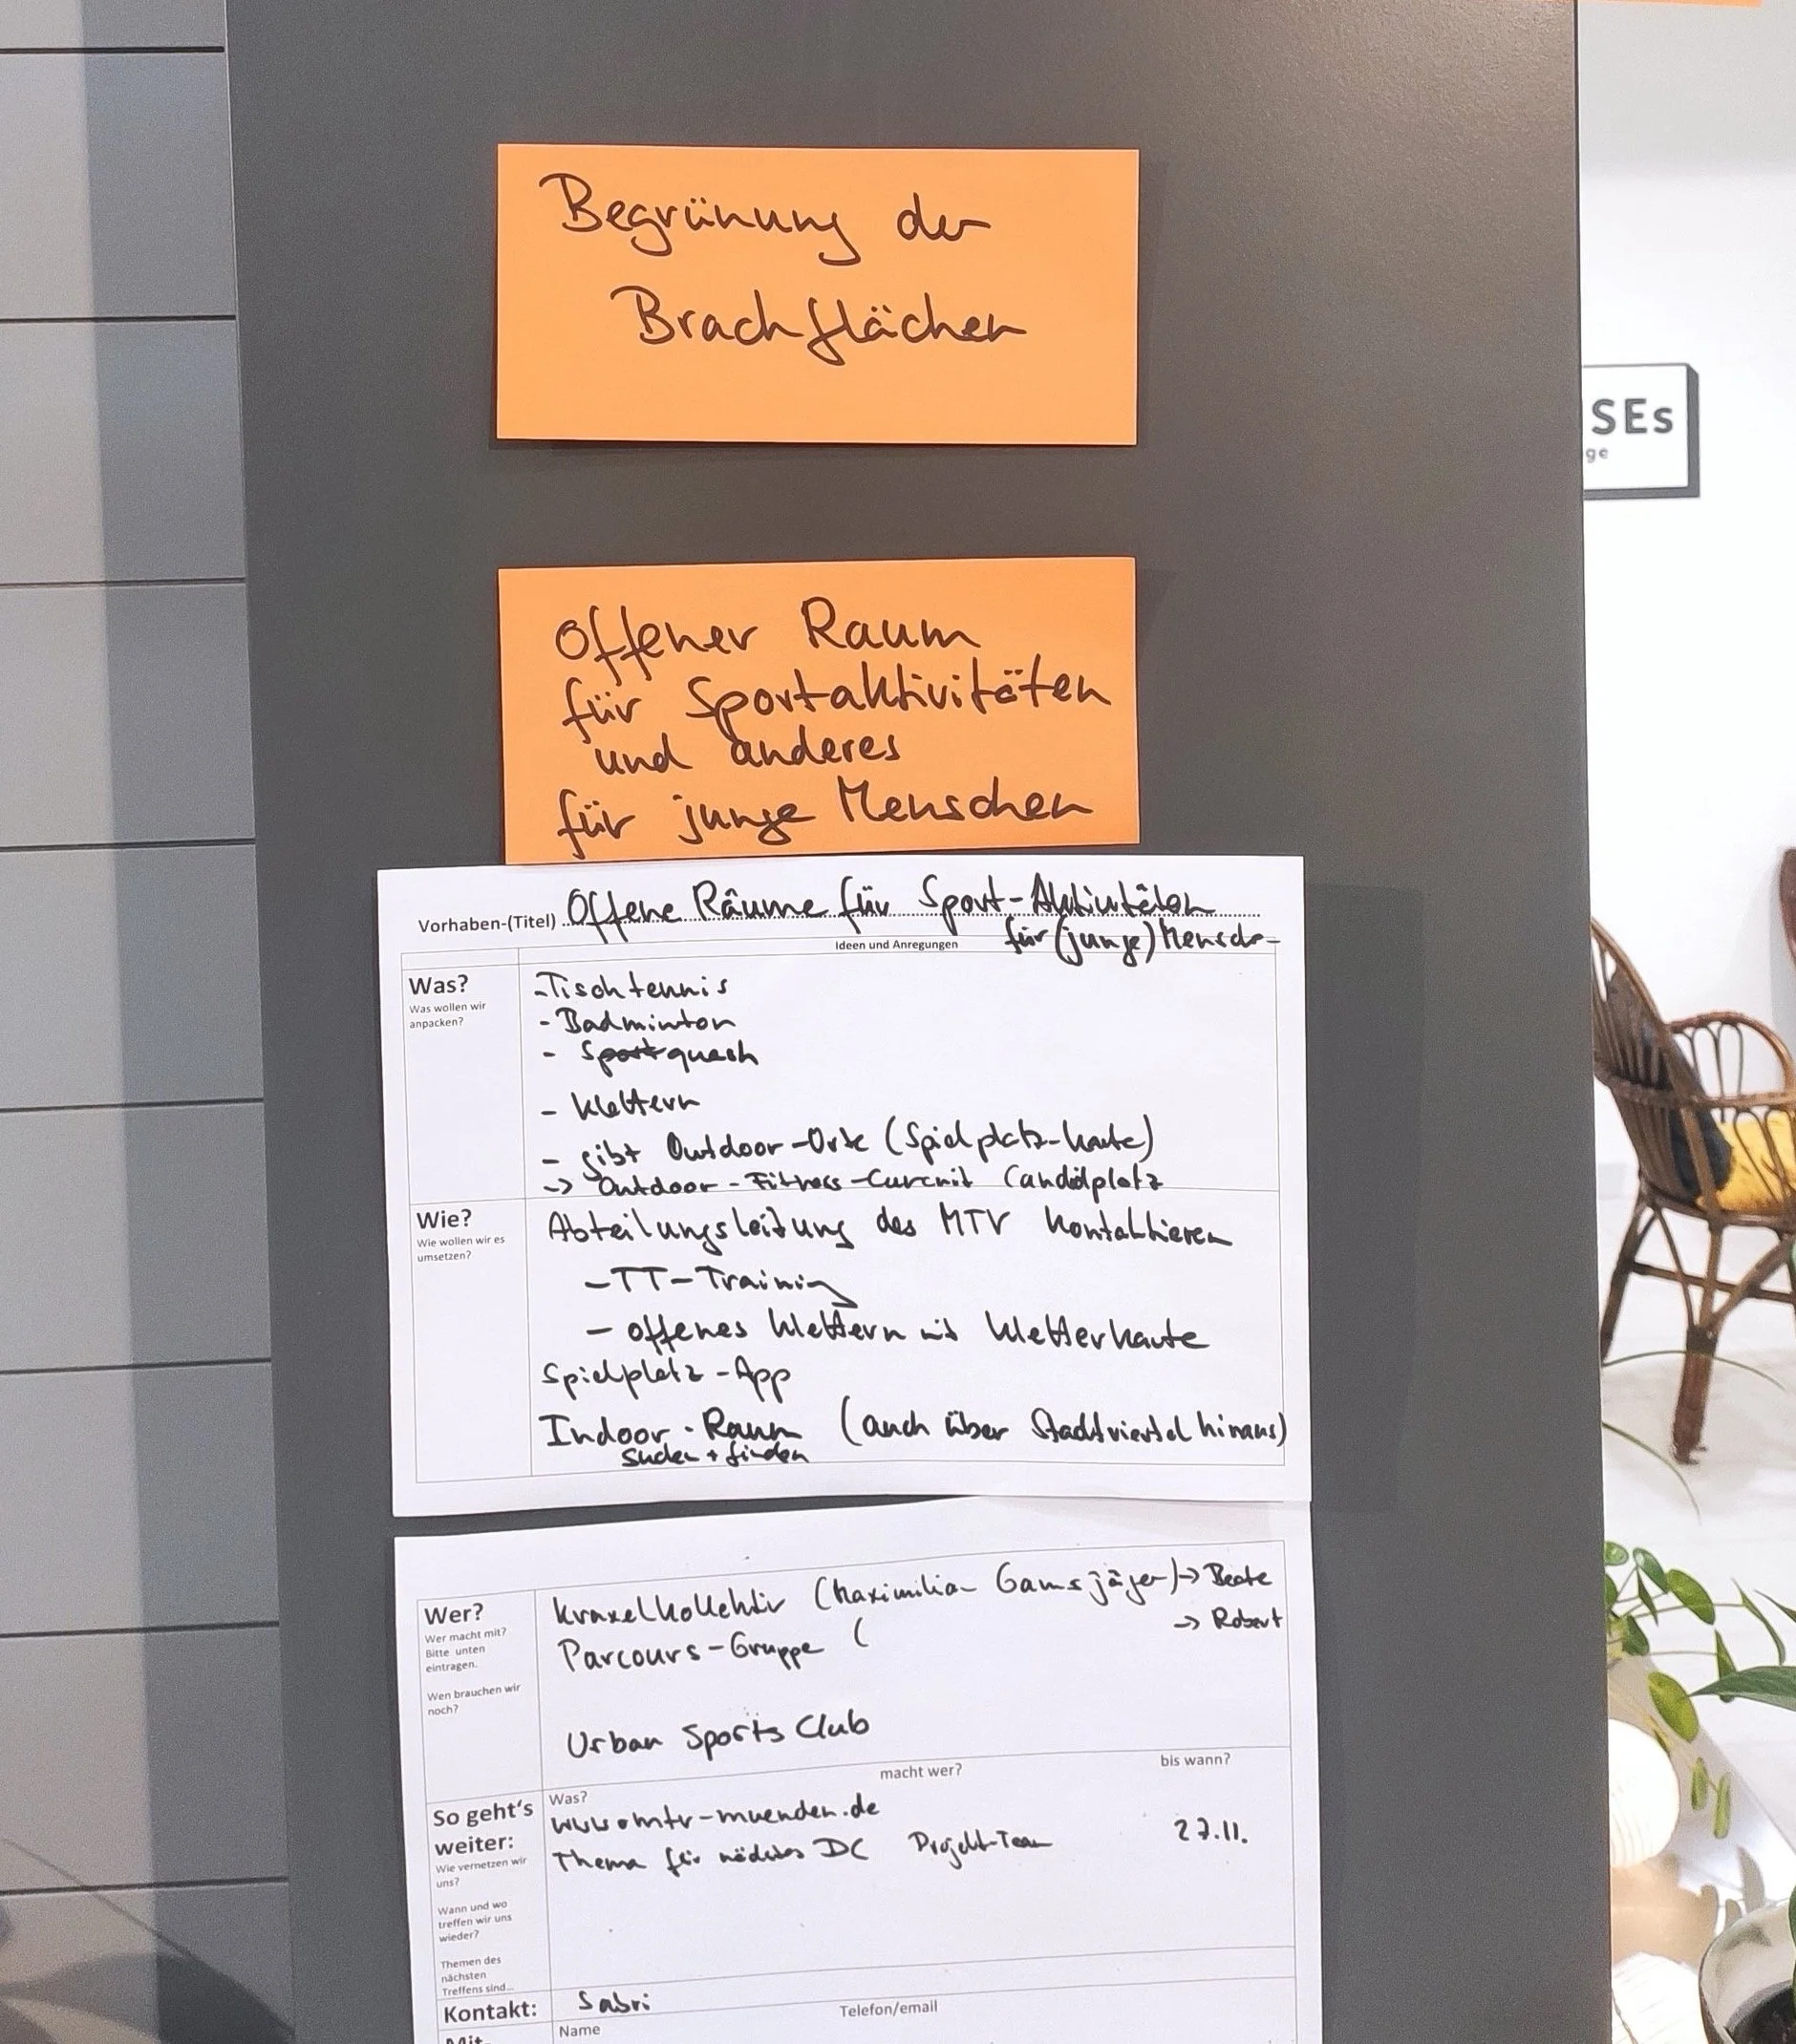 Begrünung der
Brachflächen
SEs
ge
Offener Raum
für Sportaktivitäten
und anderes
für junge Menschen
Vorhaben-(Titel) Offene Räume für Sport-Aktivitäten
für (junge) Mensch
Ideen und Anregungen
Was?
Was wollen wir
anpacken?
- Tischtennis
- Badminton
- Squash
- Klettern
- gibt Outdoor-Orte (Spielplatz-Karte)
-> Outdoor-Fitness-Curcuit Candidplatz
Wie?
Wie wollen wir es
umsetzen?
Abteilungsleitung des MTV kontaktieren
- TT-Training
- offenes Klettern mit Kletterkarte
Spielplatz-App
Indoor-Raum (auch über Stadtviertel hinaus)
suchen + finden
Wer?
Wer macht mit?
Bitte unten
eintragen.
Wen brauchen wir
noch?
Kraxelkollektiv (Maximilian Gamsjäger) -> Beate
-> Robert
Parcours-Gruppe (
Urban Sports Club
So geht's
weiter:
Wie vernetzen wir
uns?
Wann und wo
treffen wir uns
wieder?
Themen des
nächsten
Treffens sind...
Was? macht wer? bis wann?
www.mtv-muenden.de
Thema für nächstes DC Projekt-Team 27.11.
Kontakt: Sabri
Name Telefon/email
Mit-